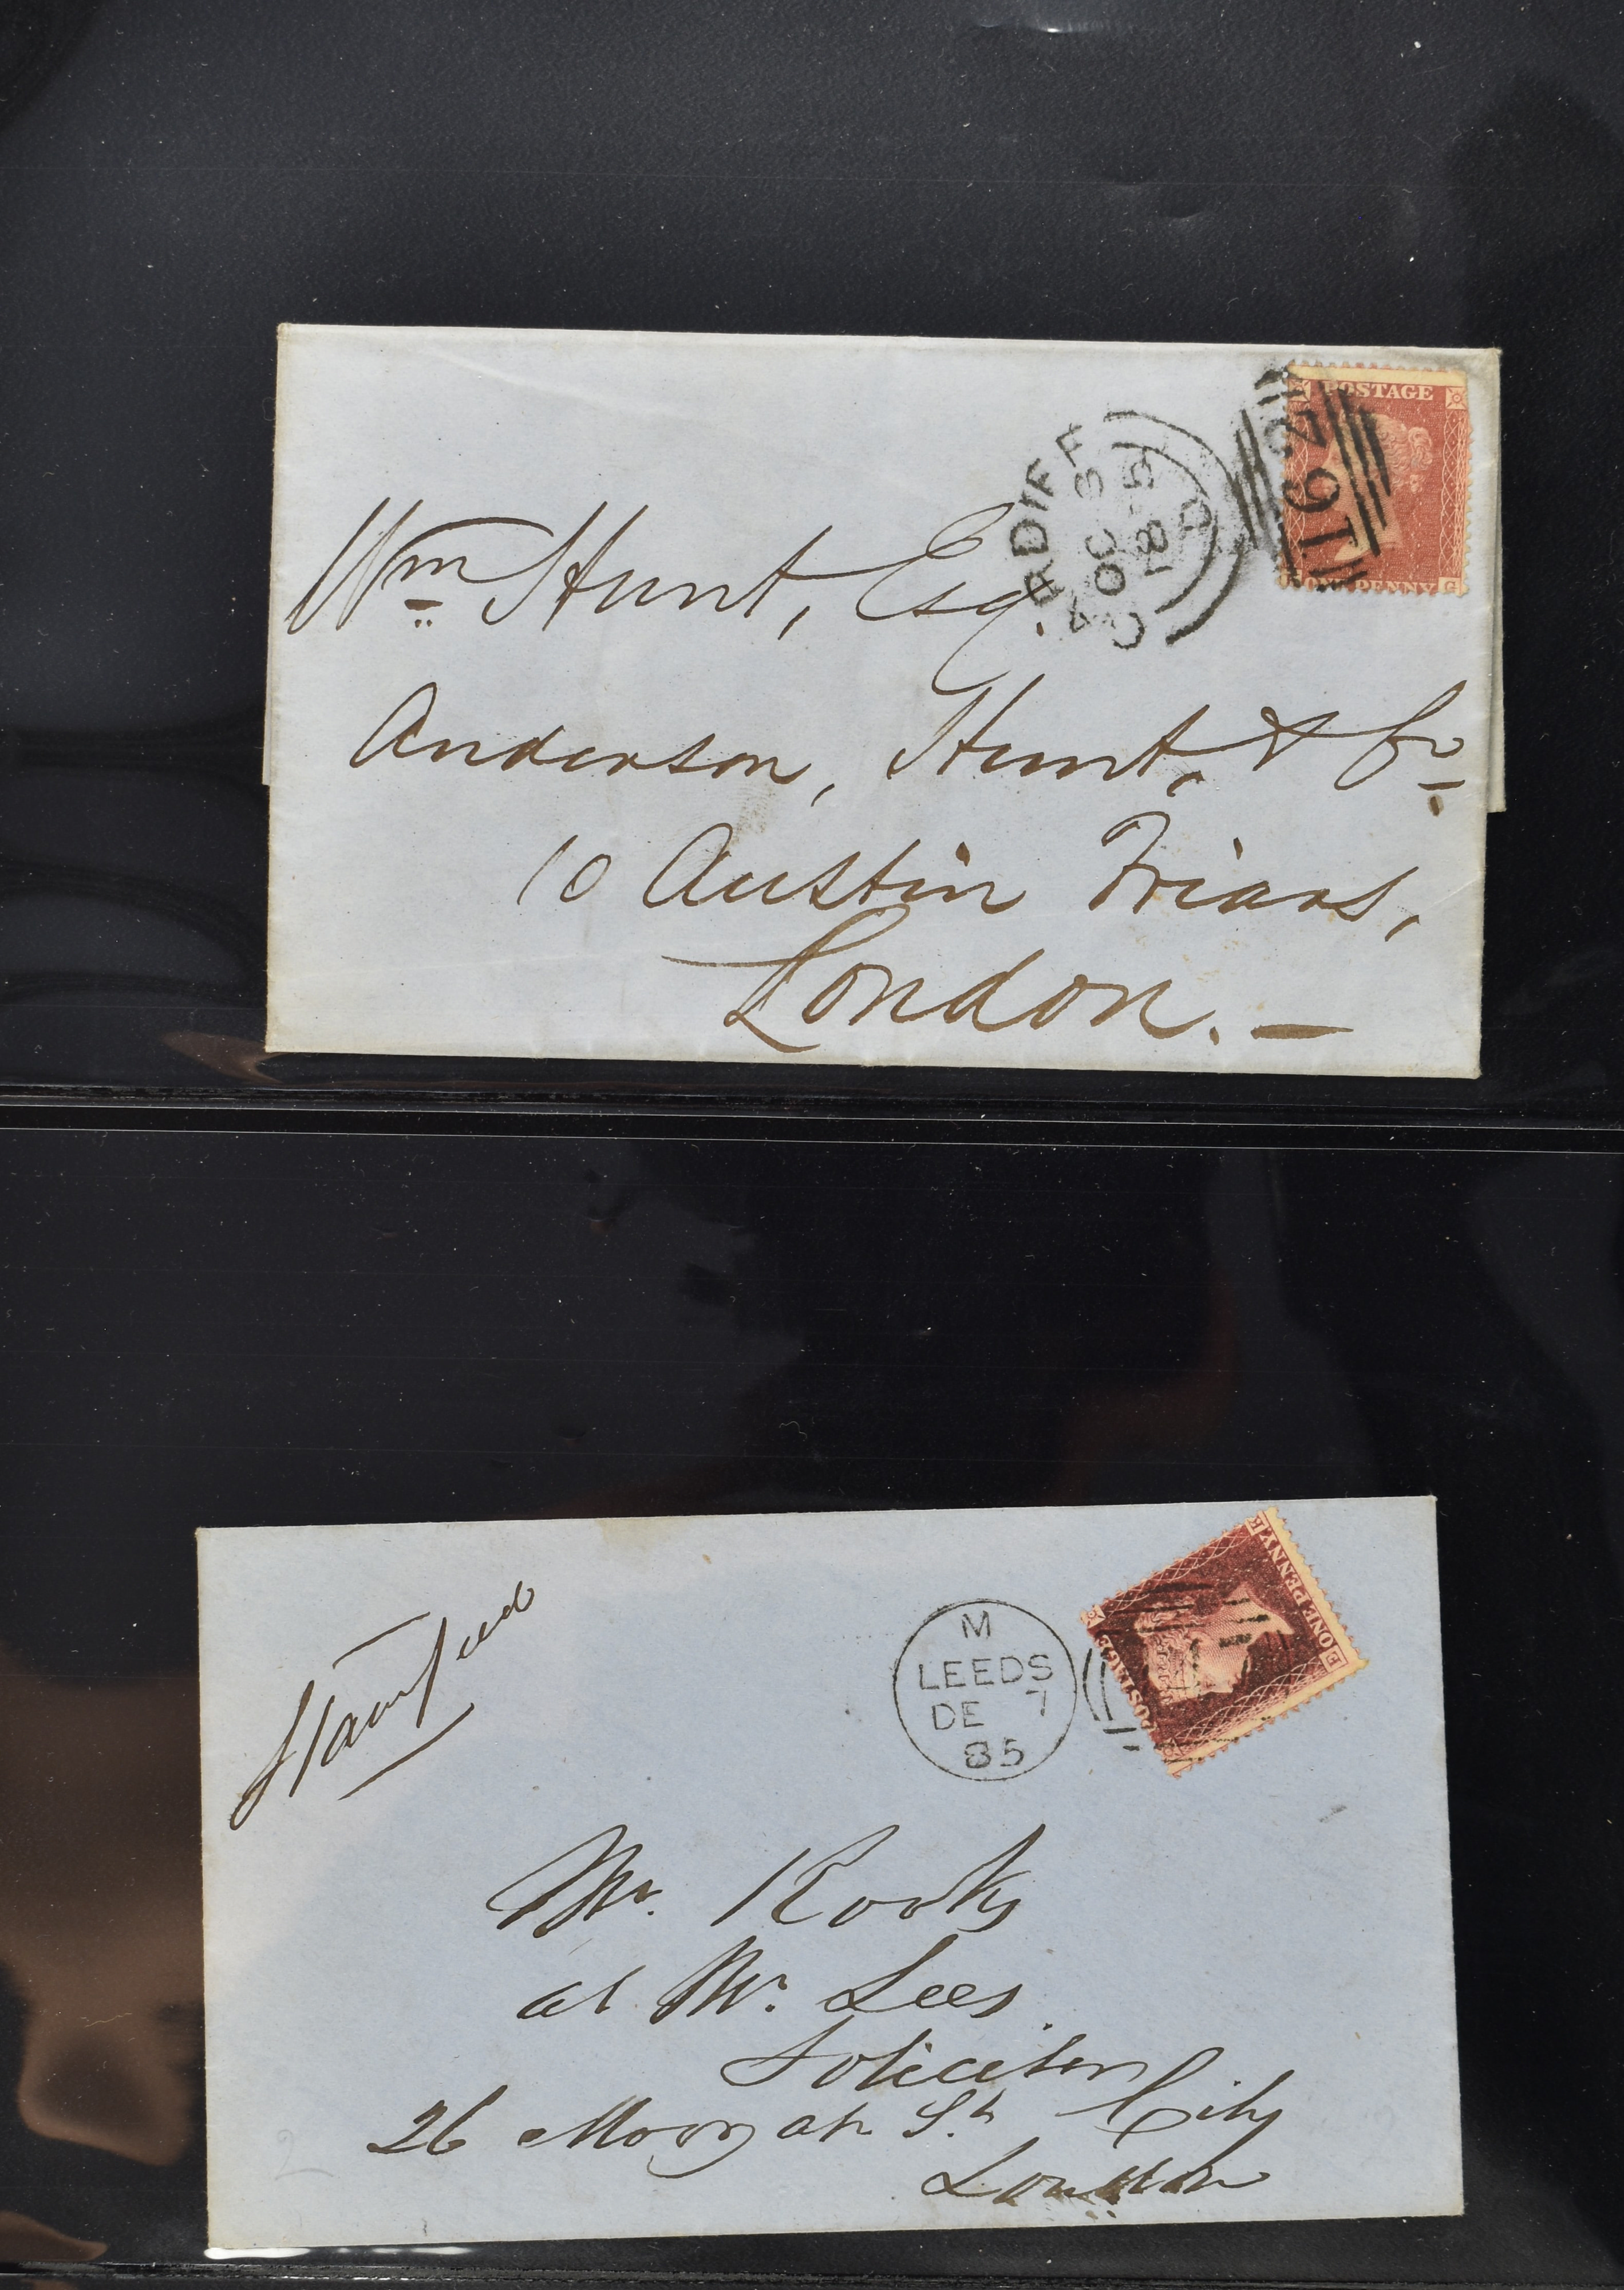 POSTAGE
PENNY
G
162
CARDIFF
OC 8
185
Wm Hunt, Esq.
Anderson, Hunt, & Co
10 Austin Friars,
London. —
Stamped
M
LEEDS
DE 7
85
POSTAGE
ONE PENNY
E
Mr.
at Mr. Lees
Solicitor
26 Moorgate St. City
London
2